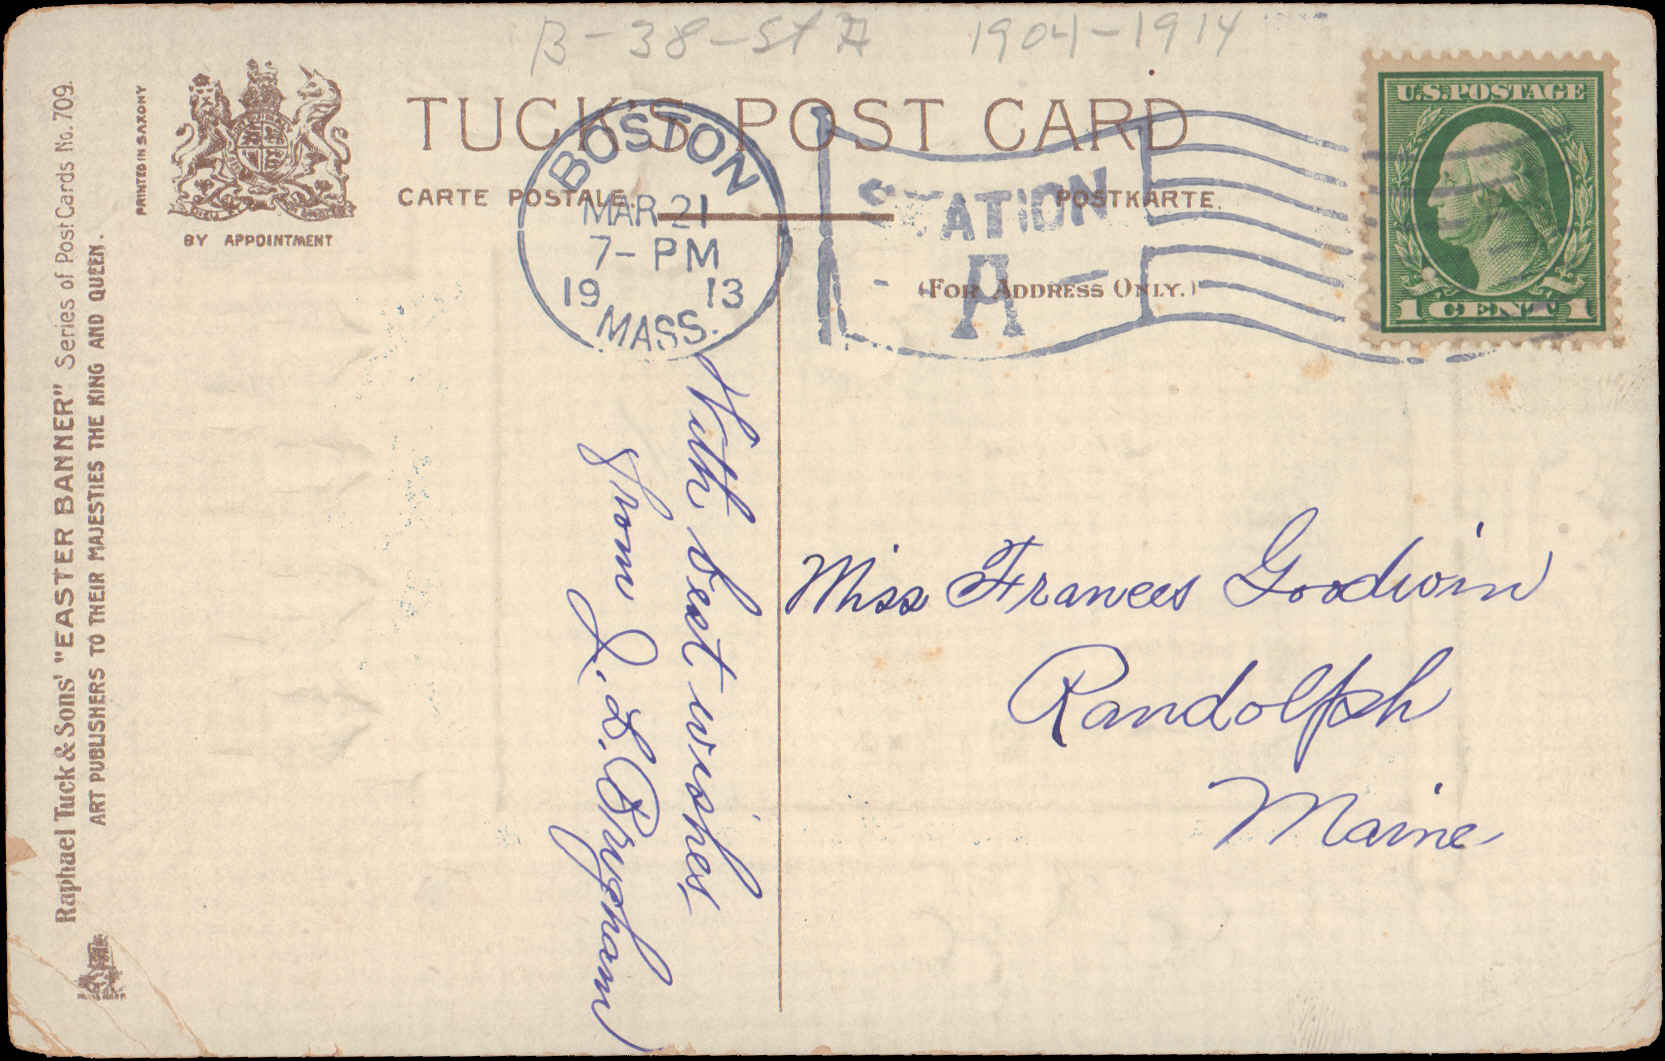 B-38-St A 1904-1914
TUCK'S POST CARD
CARTE POSTALE.
POSTKARTE.
(FOR ADDRESS ONLY.)
PRINTED IN SAXONY
BY APPOINTMENT
Raphael Tuck & Sons' "EASTER BANNER" Series of Post Cards No. 709.
ART PUBLISHERS TO THEIR MAJESTIES THE KING AND QUEEN.
BOSTON
MAR 21
7-PM
19 13
MASS.
STATION
- A -
U.S.POSTAGE
1 CENT 1
With best wishes
from J. L. Brigham
Miss Frances Goodwin
Randolph
Maine